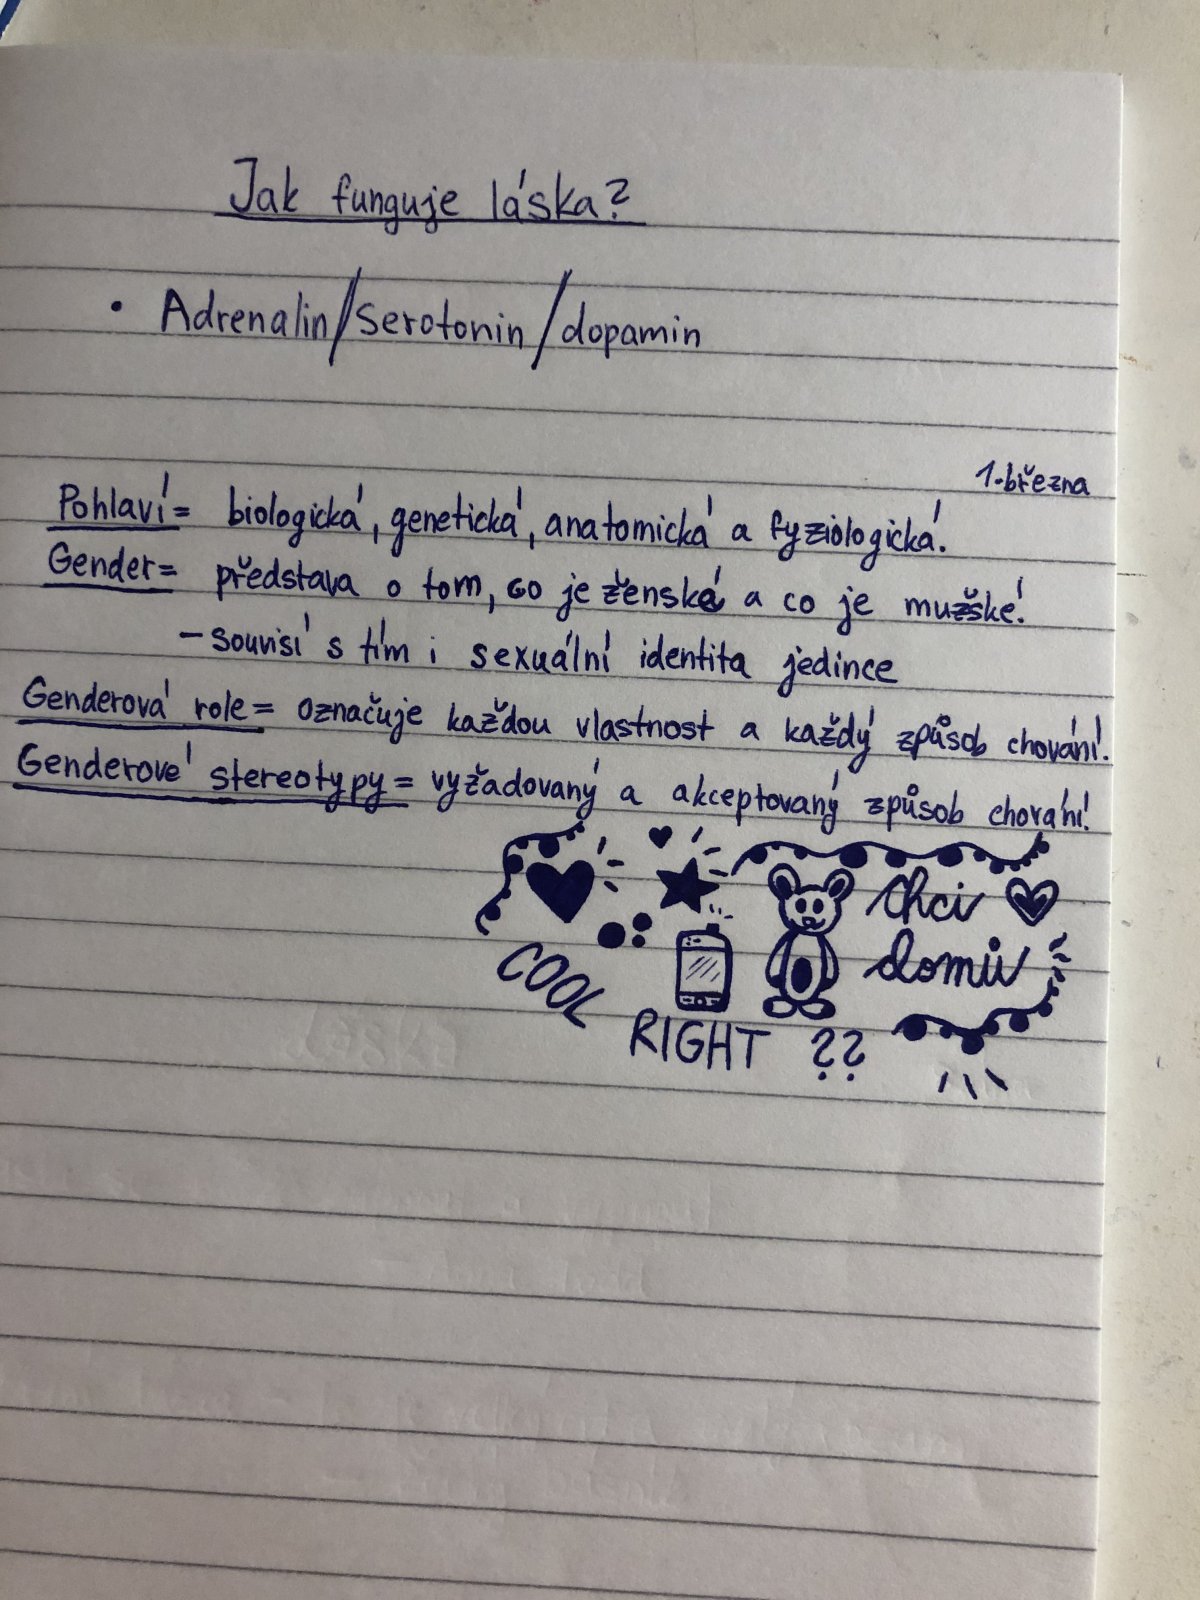 Jak funguje láska?
• Adrenalin/serotonin/dopamin
1.března
Pohlaví = biologická, genetická, anatomická a fyziologická.
Gender = představa o tom, co je ženské a co je mužské.
- souvisí s tím i sexuální identita jedince
Genderová role = označuje každou vlastnost a každý způsob chování.
Genderové stereotypy = vyžadovaný a akceptovaný způsob chování.
Chci
domů
COOL
RIGHT ??